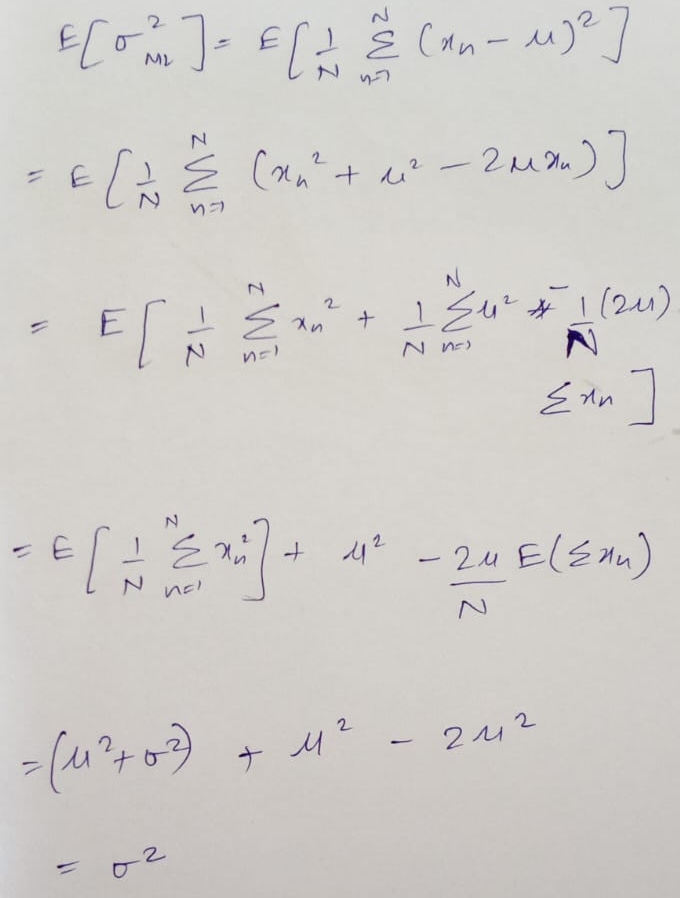 E[σ²_ML] = E[1/N Σ_{n=1}^{N} (xₙ - μ)²]
= E[1/N Σ_{n=1}^{N} (xₙ² + μ² - 2μxₙ)]
= E[1/N Σ_{n=1}^{N} xₙ² + 1/N Σ_{n=1}^{N} μ² - 1/N (2μ)
Σxₙ]
= E[1/N Σ_{n=1}^{N} xₙ²] + μ² - 2μ/N E(Σxₙ)
= (μ² + σ²) + μ² - 2μ²
= σ²